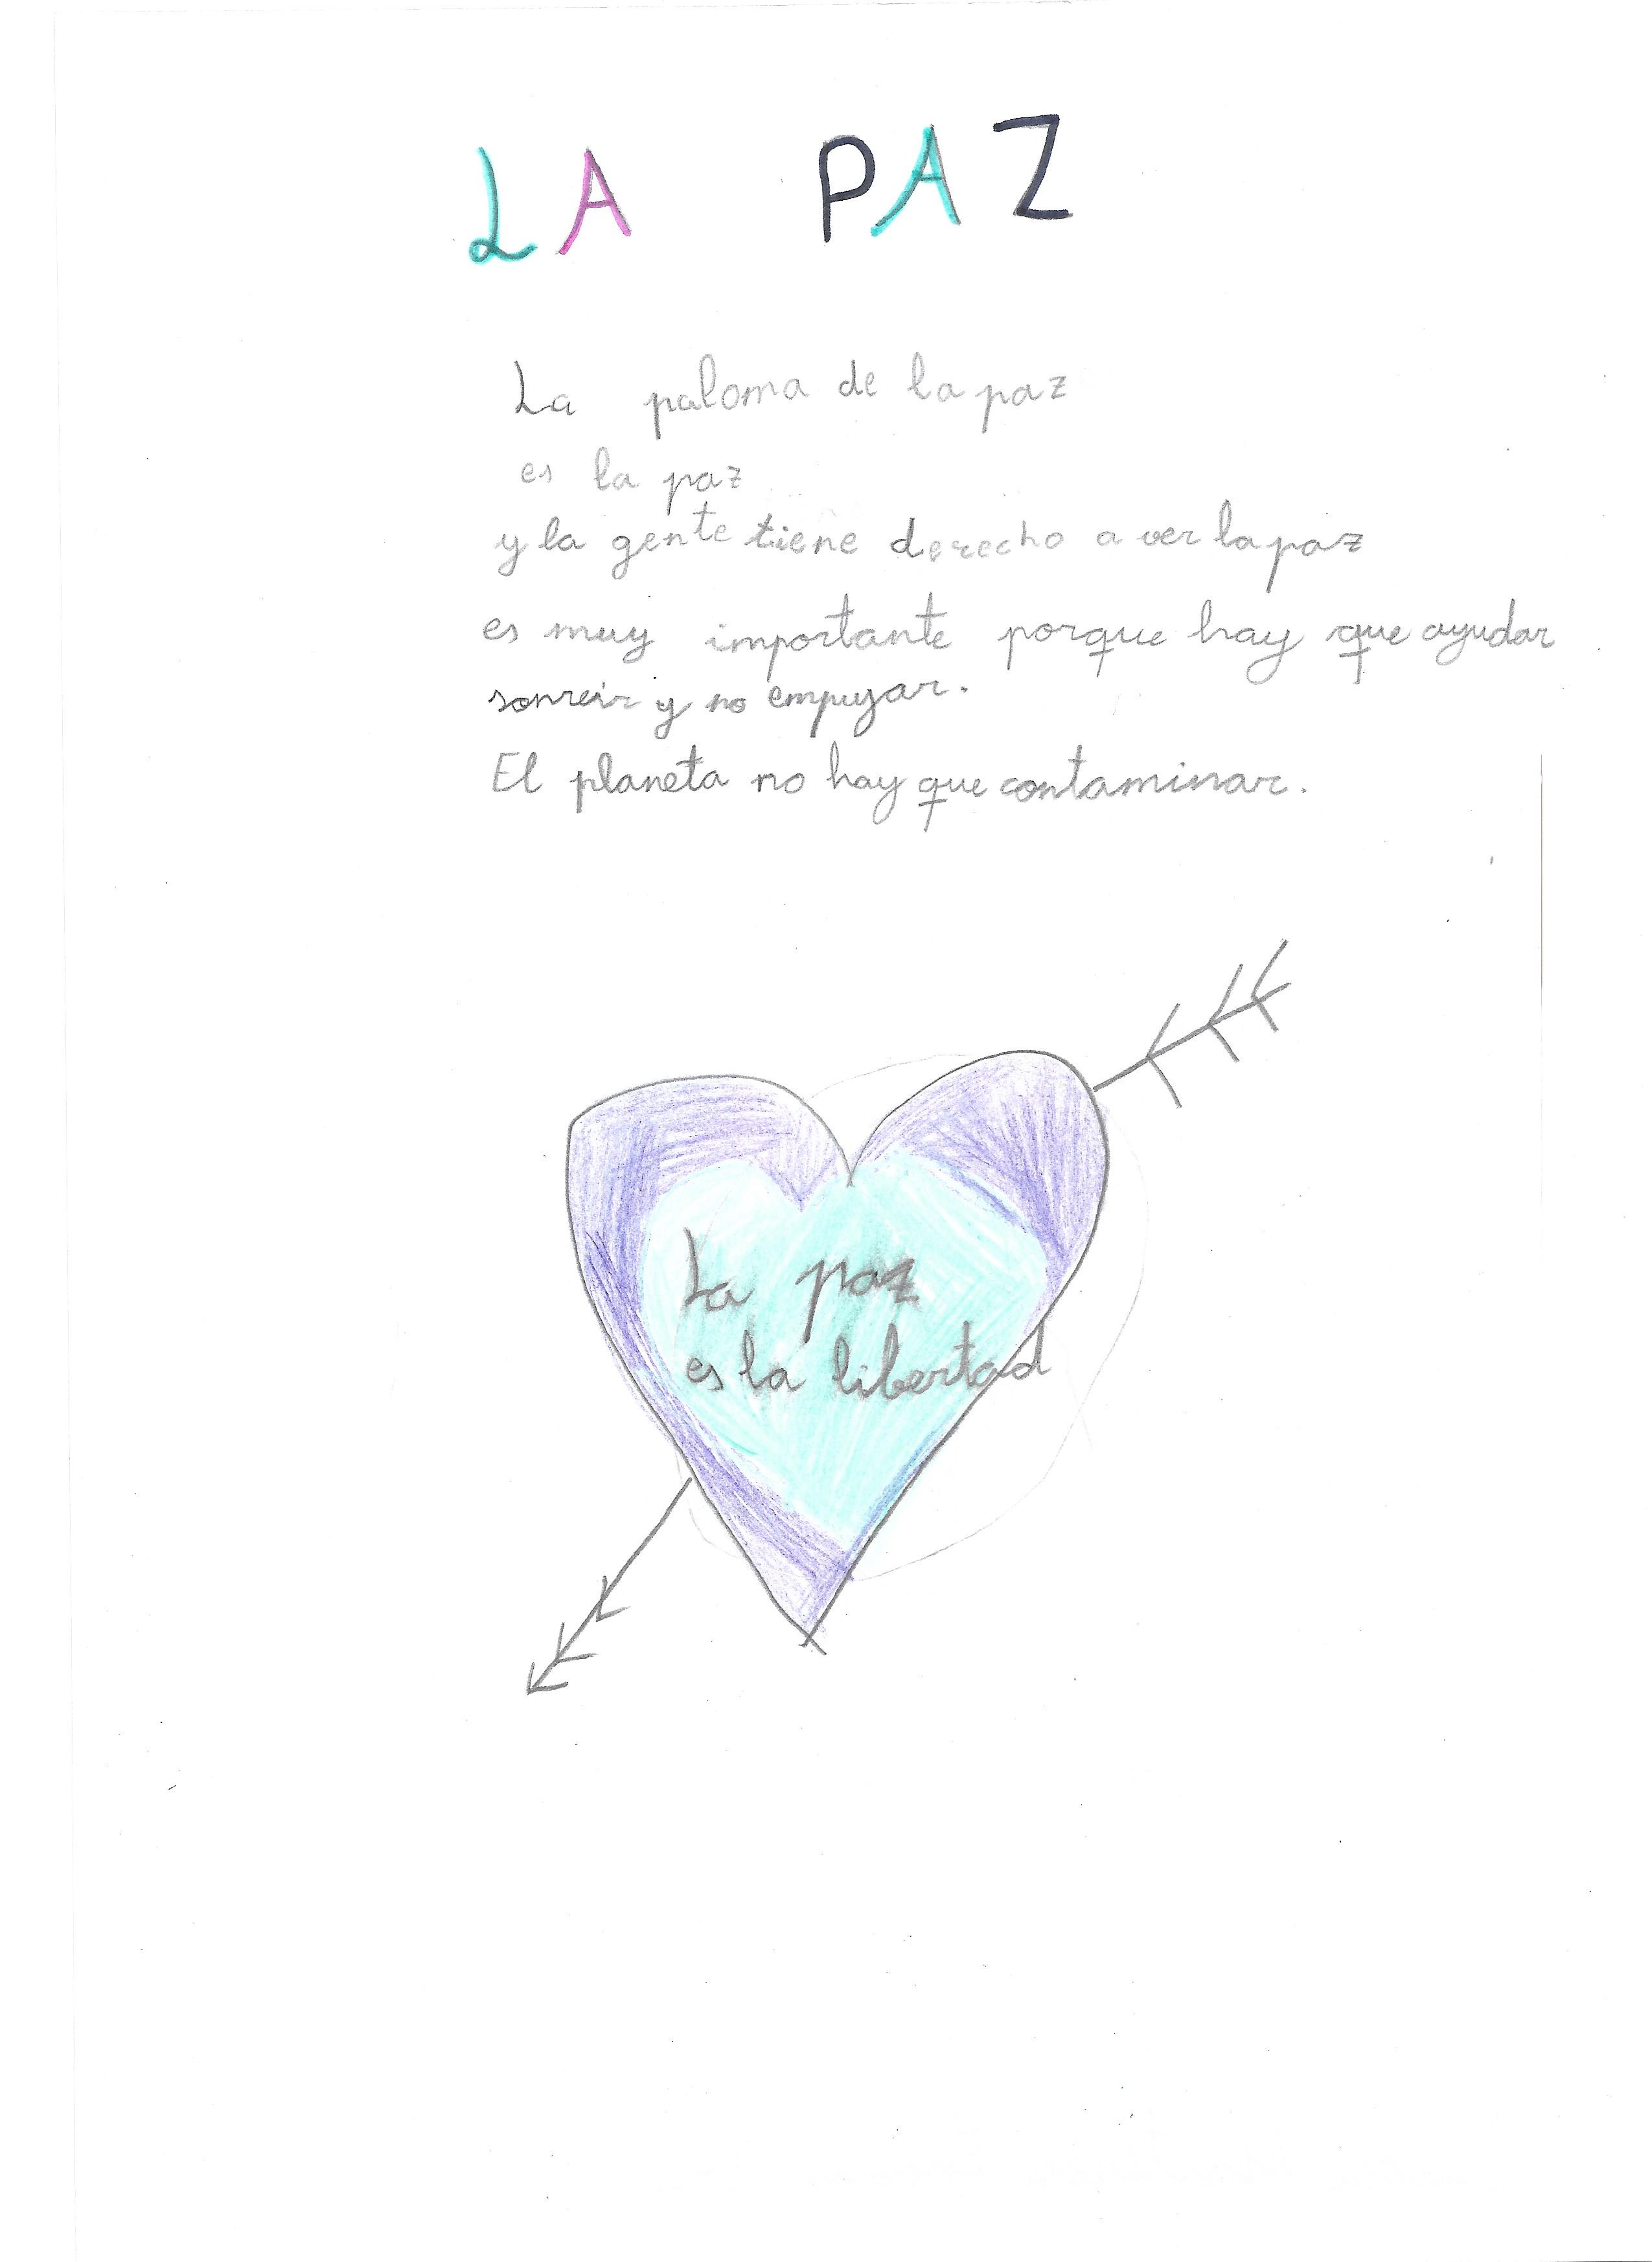 LA PAZ
La paloma de la paz
es la paz
y la gente tiene derecho a ver la paz
es muy importante porque hay que ayudar
sonreir y no empujar.
El planeta no hay que contaminar.
La paz
es la libertad